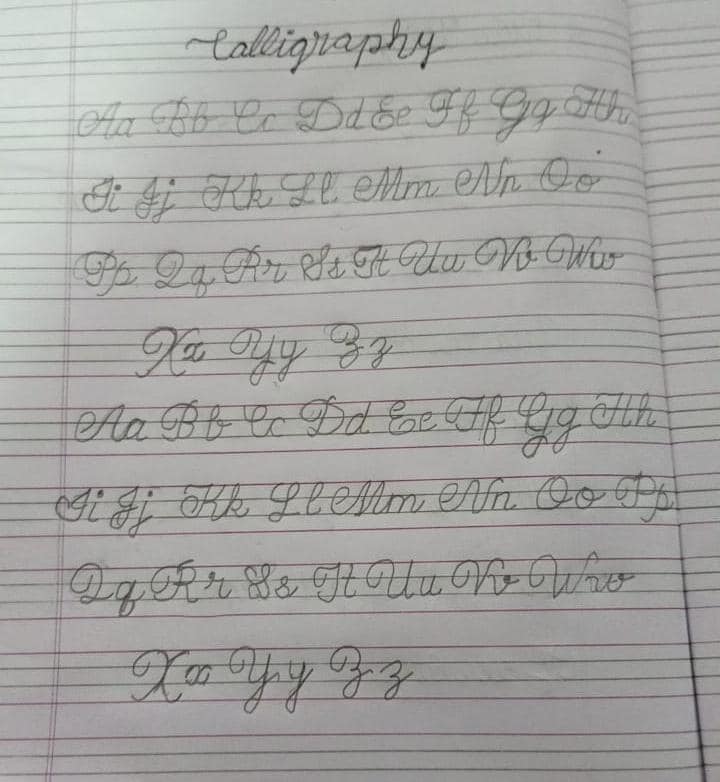 Calligraphy
Aa Bb Cc Dd Ee Ff Gg Hh
Ii Jj Kk Ll Mm Nn Oo
Pp Qq Rr Ss Tt Uu Vv Ww
Xx Yy Zz
Aa Bb Cc Dd Ee Ff Gg Hh
Ii Jj Kk Ll Mm Nn Oo Pp
Qq Rr Ss Tt Uu Vv Ww
Xx Yy Zz